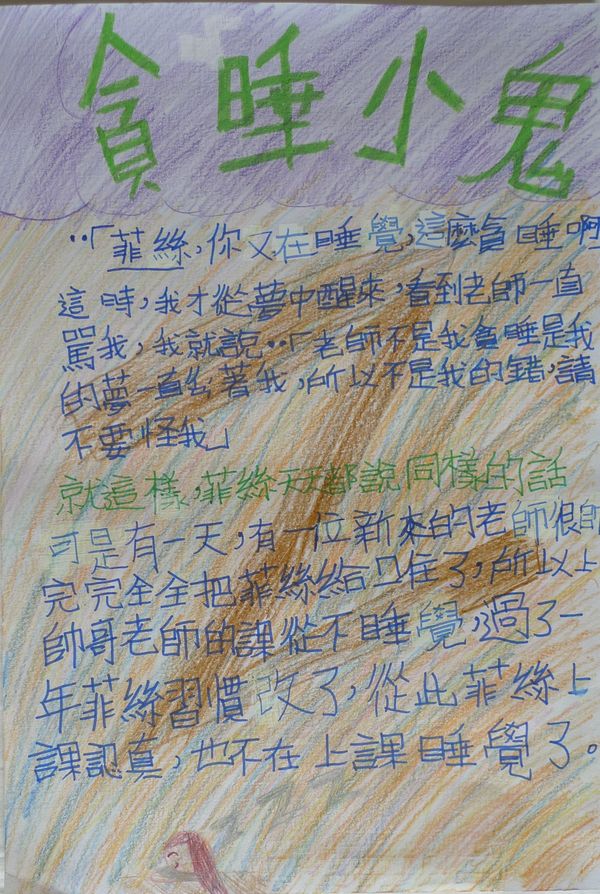 貪睡小鬼
··「菲絲,你又在睡覺,這麼貪睡啊
這時,我才從夢中醒來,看到老師一直
罵我,我就說··「老師不是我貪睡是我
的夢一直纟著我,所以不是我的錯,請
不要怪我」
就這樣,菲絲天天都說同樣的話
可是有一天,有一位新來的老師很帥
完完全全把菲絲給口住了,所以上
帥哥老師的課從不睡覺,過了一
年菲絲習慣改了,從此菲絲上
課認真,也不在上課睡覺了。